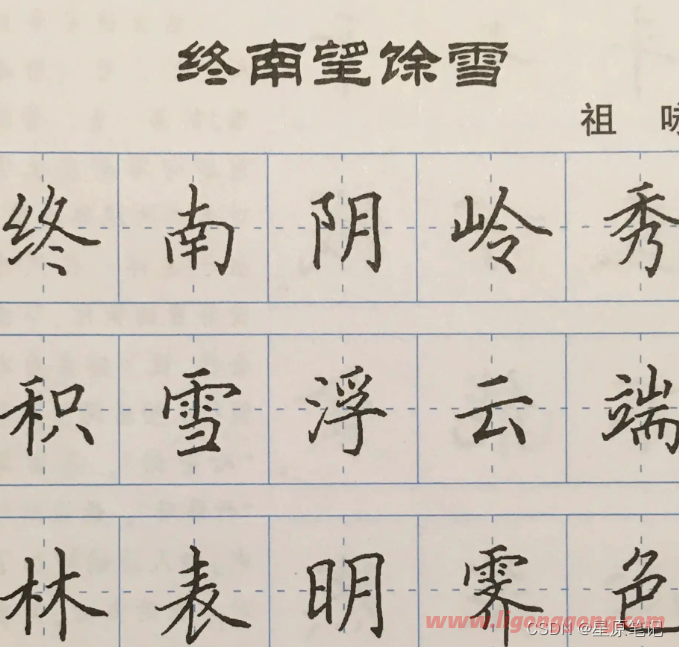 终南望馀雪
祖 咏
终南阴岭秀
积雪浮云端
林表明霁色
www.ligonggong.com
CSDN @星原笔记